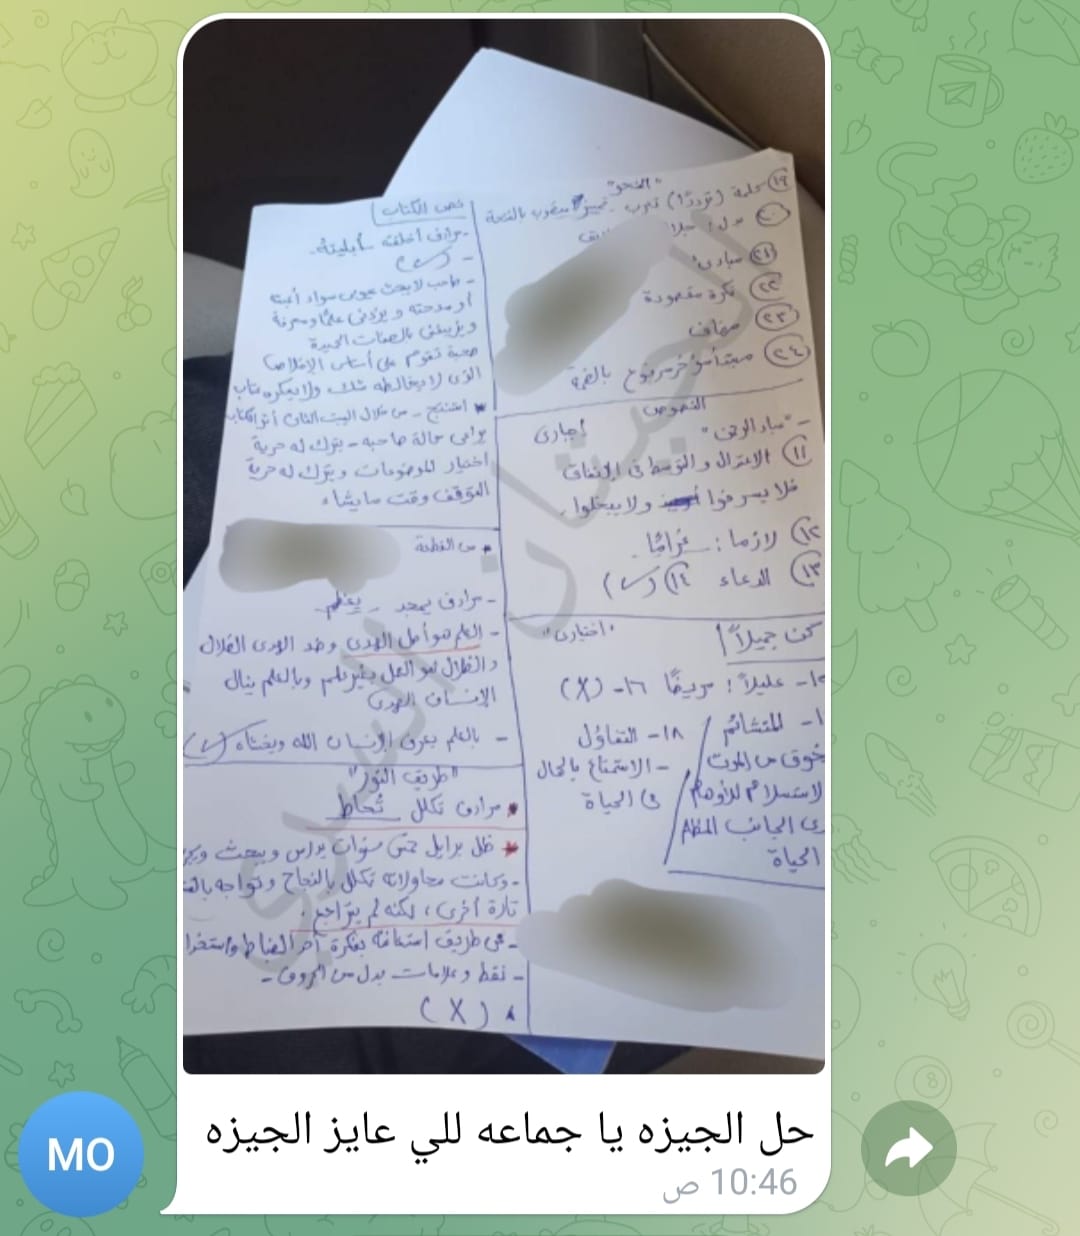 "النحو"
١٩ كلمة (ترددًا) تعرب تمييز منصوب بالفتحة
٢٠ مدل:
٢١ مبادئ
٢٢ نكرة مقصودة
٢٣ مضاف
٢٤ مبتدأ مؤخر مرفوع بالضمة
النصوص
- "عباد الرحمن" إجبارى
١١ الاعتدال والتوسط فى الإنفاق
فلا يسرفوا ولا يبخلوا.
١٢ لازما: غرامًا.
١٣ الدعاء ١٤ (✓)
كن جميلاً "اختيارى"
١٥- عليلاً: مريضًا ١٦- (X)
- المتشائم
خوف من الموت
الاستسلام للأوهام
الجانب المظلم
الحياة
١٨- التفاؤل
- الاستمتاع بالجمال
فى الحياة
نص الكتاب
- مرادف أخلقته أبليته.
- (✓)
- صاحب لا يبحث عيوبى سواء أعبته
أو مدحته و يزدنى علمًا ومعرفة
ويزيننى بالصفات الحميدة
صحبة تقوم على أساس الإخلاص
الذى لا يخالطه شك ولا يعكره عتاب
* استنتج - من خلال البيت الثانى أن الكتاب
يراعى حالة صاحبه - يترك له حرية
اختيار الموضوعات ويترك له حرية
التوقف وقت ما يشاء
* من القطعة
- مرادف يمجد - يعظم
- العلم هو أصل الهدى وضد الهدى الضلال
والضلال هو العمل بغير علم وبالعلم ينال
الإنسان الهدى
- بالعلم يعرف الإنسان الله ويخشاه (✓)
"طريق النور"
* مرادف تكلل تُحاط
* ظل برايل خمس سنوات يدرس ويبحث
- وكانت محاولاته تكلل بالنجاح وتواجه
تارة أخرى، لكنه لم يتراجع.
- عن طريق استعانة بفكرة أحد الضباط
- نقط وعلامات بدل من الحروف -
* (X)
السيد
حل الجيزه يا جماعه للي عايز الجيزه
10:46 ص
MO